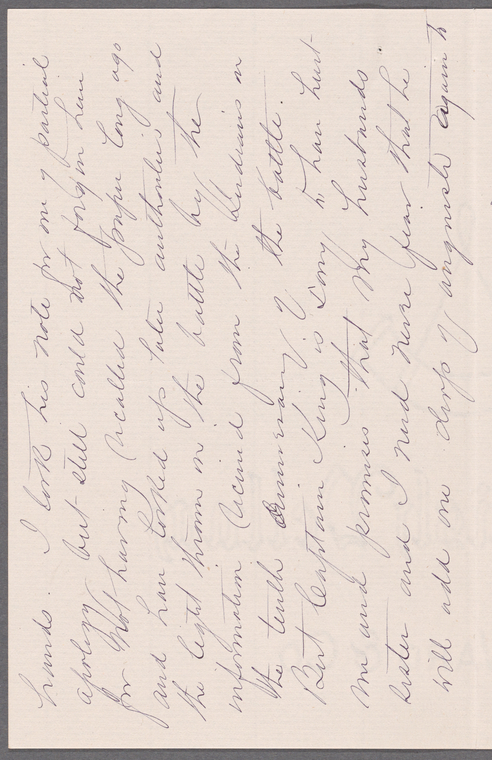 hands. I took his note for one of partial
apology but still could not forgive him
for not having recalled the paper long ago
and have looked up later authorities and
the light thrown on the battle by the
information received from the Indians on
the tenth anniversary of the battle.
But Captain King is sorry to have hurt
me and promises that my husbands
sister and I need never fear that he
will add one drop of anguish again to